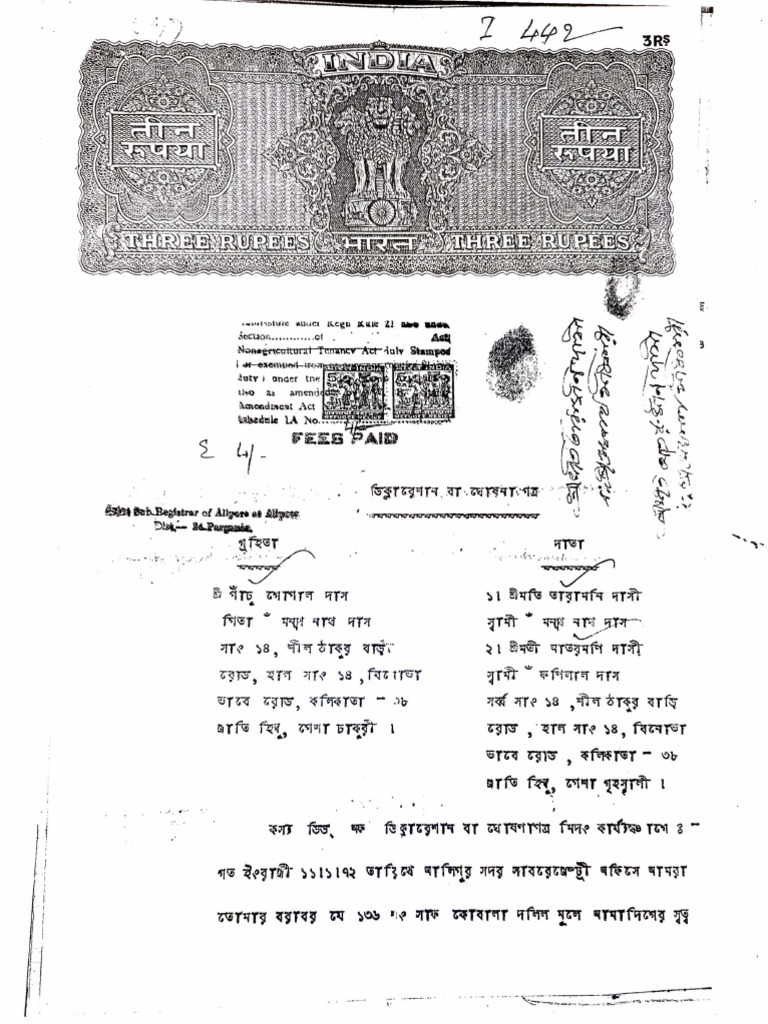 I 442
3RS
INDIA
तीन रुपया
तीन रुपया
THREE RUPEES भारत THREE RUPEES
Admissible under Regn Rule 21
Section.............of Act
Nonagricultural Tenancy Act duly Stamped
duty) under the
tho as amended
Amendment Act
Schedule IA No.
FEES PAID
E 4/-
ডিক্লারেশান বা ঘোষনাপত্র
Sub.Registrar of Alipore at Alipore
Dist,— 24 Parganas.
গ্রহিতা
দাতা
শ্রী পাঁচু গোপাল দাস
পিতা ঁ মন্মথ নাথ দাস
সাং ১৪, শীল ঠাকুর বাড়ী
রোড, হাল সাং ১৪, বিনোভা
ভাবে রোড, কলিকাতা - ৩৮
জাতি হিন্দু, পেশা চাকুরী ।
১। শ্রীমতি তারামনি দাসী
স্বামী ঁ মন্মথ নাথ দাস
২। শ্রীমতী মাতরমণি দাসী
স্বামী ঁ ফণিলাল দাস
সর্ব্ব সাং ১৪, শীল ঠাকুর বাড়ি
রোড, হাল সাং ১৪, বিনোভা
ভাবে রোড, কলিকাতা - ৩৮
জাতি হিন্দু, পেশা গৃহস্থালী ।
কস্য ডিক্লারেশান বা ঘোষণাপত্র মিদং কার্য্যঞ্চাগে ঃ -
গত ইংরাজী ১১।১।৭২ তারিখে আলিপুর সদর সাবরেজেষ্ট্রী অফিসে আমরা
তোমার বরাবর যে ১৩৬ নং সাফ কোবালা দলিল মূলে আমাদিগের স্বত্ব